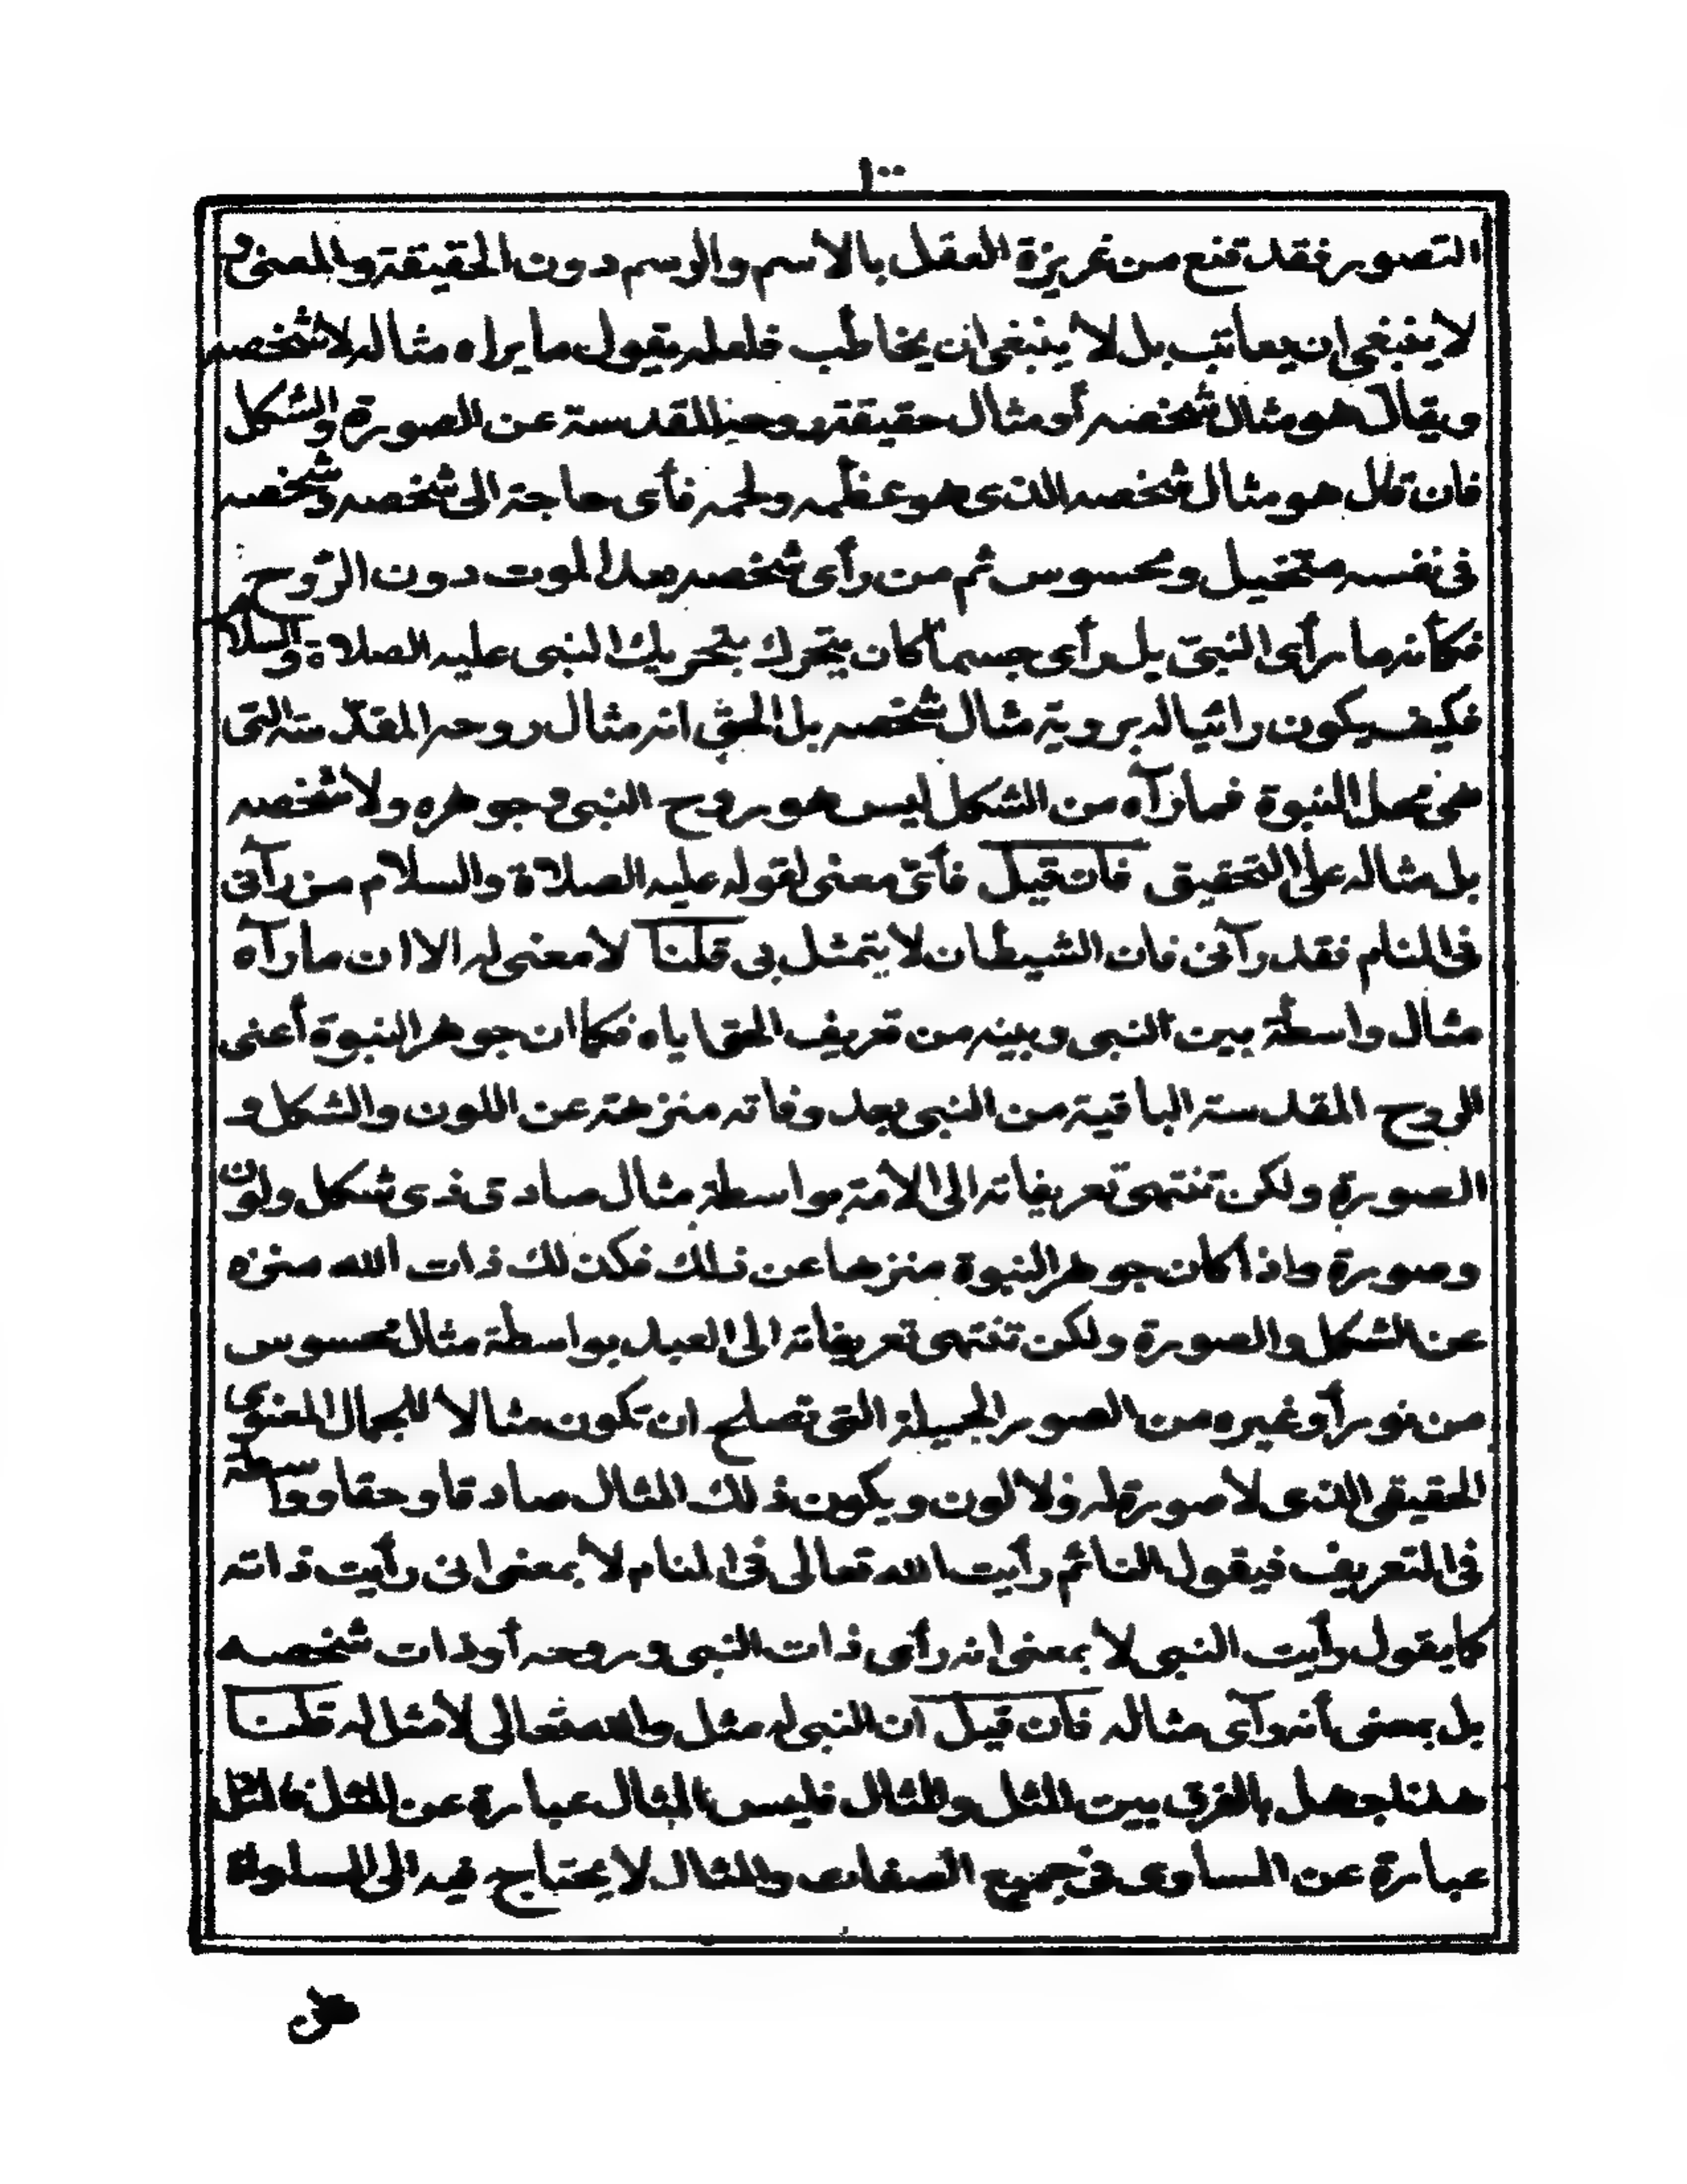 ١٠٠
التصور فقد قنع من غريزة العقل بالاسم والرسم دون الحقيقة والمعنى و
لا ينبغى ان يعاتب بل لا ينبغى ان يخاطب فلعله يقول ما يراه مثاله لا شخصه
ويقال هو مثال شخصه أو مثال حقيقة روحه المقدسة عن الصورة والشكل
فان قال هو مثال شخصه الذى هو عظمه ولحمه فأى حاجة الى شخصه وشخصه
فى نفسه متخيل ومحسوس ثم من رأى شخصه بعد الموت دون الروح
فكأنه ما رأى النبى بل رأى جسما كان يتحرك بتحريك النبى عليه الصلاة والسلام
فكيف يكون رائيا له بروية مثال شخصه بل الحق انه مثال روحه المقدسة التى
هى محل النبوة فما رآه من الشكل ليس هو روح النبى وجوهره ولا شخصه
بل مثاله على التحقيق فان قيل فأى معنى لقوله عليه الصلاة والسلام من رآنى
فى المنام فقد رآنى فان الشيطان لا يتمثل بى قلنا لا معنى له الا ان ما رآه
مثال واسطة بين النبى وبينه من تعريف الحق اياه فكما ان جوهر النبوة أعنى
الروح المقدسة الباقية من النبى بعد وفاته منزهة عن اللون والشكل و
الصورة ولكن تنتهى تعريفاته الى الامة بواسطة مثال صادق ذى شكل ولون
وصورة واذا كان جوهر النبوة منزها عن ذلك فكذلك ذات الله منزه
عن الشكل والصورة ولكن تنتهى تعريفاته الى العبد بواسطة مثال محسوس
من نور أو غيره من الصور الجميلة التى تصلح ان تكون مثالا للجمال المعنوى
الحقيقى الذى لا صورة له ولا لون ويكون ذلك المثال صادقا وحقا وواسطة
فى التعريف فيقول النائم رأيت الله تعالى فى المنام لا بمعنى انى رأيت ذاته
كما يقول رأيت النبى لا بمعنى انه رأى ذات النبى وروحه أو ذات شخصه
بل بمعنى أنه رآى مثاله فان قيل ان النبى له مثل والله تعالى لا مثل له قلنا
هذا جهل بالفرق بين المثل والمثال فليس المثال عبارة عن المثل فالمثل
عبارة عن المساوى فى جميع الصفات والمثال لا يحتاج فيه الى المساواة